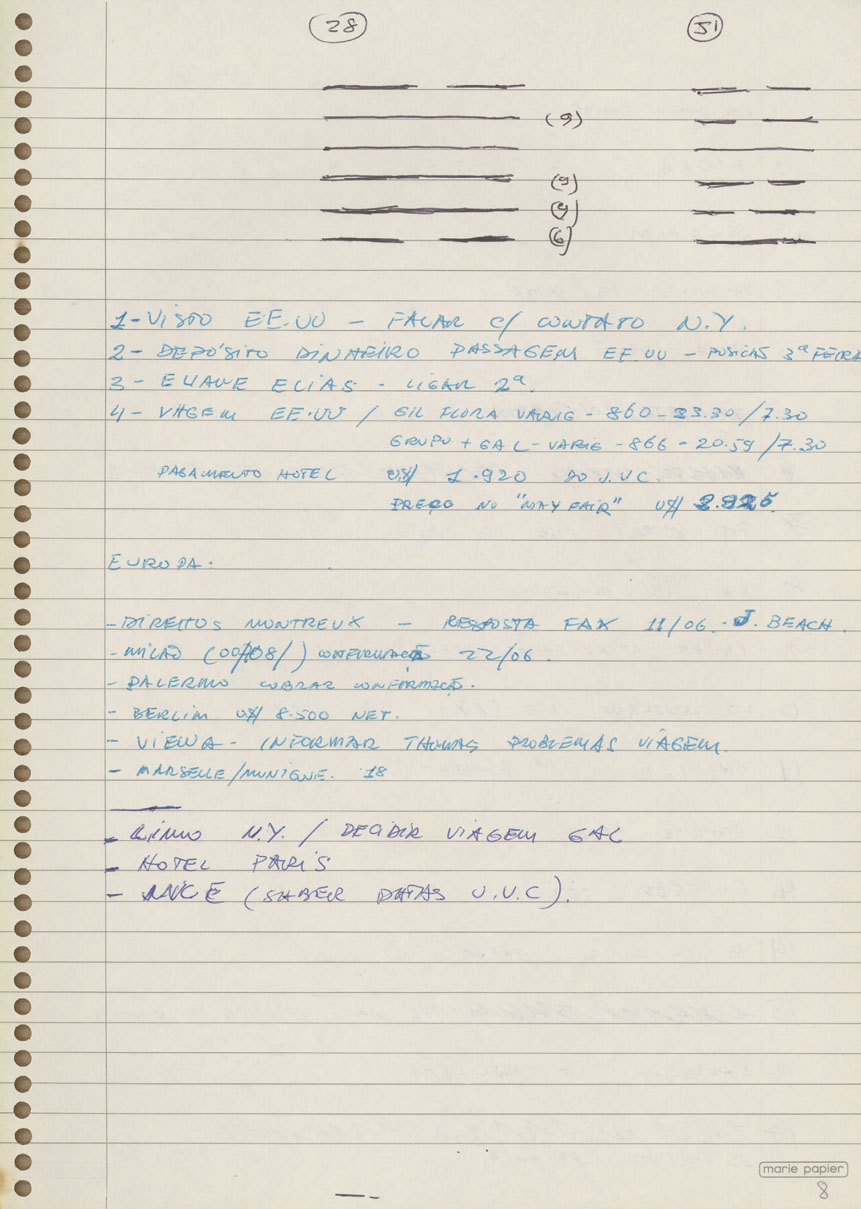 28 51
(9)
(9)
(9)
(6)
1- VISTO EE.UU - FALAR C/ CONTATO N.Y.
2- DEPÓSITO DINHEIRO PASSAGEM EE.UU - 3ª FEIRA
3- ELIANE ELIAS - LIGAR 2ª.
4- VIAGEM EE.UU / GIL FLORA VARIG - 860 - 23.30 / 7.30
GRUPO + GAL - VARIG - 866 - 20.59 / 7.30
PAGAMENTO HOTEL US$ 1.920
PREÇO NO "MAYFAIR" US$ 2.925.
EUROPA:
- DIREITOS MONTREUX - RESPOSTA FAX 11/06. J. BEACH.
- MILÃO (00/08/) CONFIRMAÇÃO 22/06.
- PALERMO COBRAR CONFIRMAÇÃO.
- BERLIM US$ 8.500 NET.
- VIENA - INFORMAR THOMAS PROBLEMAS VIAGEM.
- MARSELLE/MUNIGNE. 18
- N.Y. / DECIDIR VIAGEM GAL
- HOTEL PARIS
- NICE (SABER DATAS U.V.C).
marie papier
8